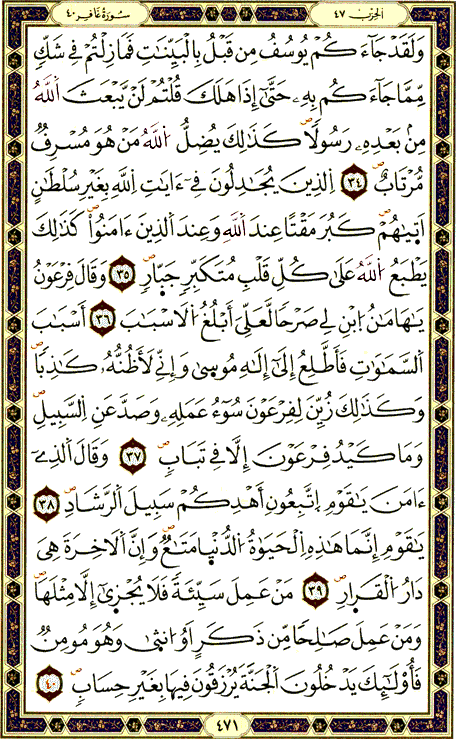 الحزب ٤٧
سورة غافر ٤٠
وَلَقَدْ جَآءَكُمْ يُوسُفُ مِن قَبْلُ بِالْبَيِّنَٰتِ فَمَا زِلْتُمْ فِے شَكّٖ
مِّمَّا جَآءَكُم بِهِۦ حَتَّىٰٓ إِذَا هَلَكَ قُلْتُمْ لَنْ يَّبْعَثَ اَللَّهُ
مِنۢ بَعْدِهِۦ رَسُولاٗ كَذَٰلِكَ يُضِلُّ اُللَّهُ مَنْ هُوَ مُسْرِفٞ
مُّرْتَابٌ ٣٤ اِلذِينَ يُجَٰدِلُونَ فِےٓ ءَايَٰتِ اِللَّهِ بِغَيْرِ سُلْطَٰنٍ
اَتٰىٰهُمْ كَبُرَ مَقْتاً عِندَ اَللَّهِ وَعِندَ اَلذِينَ ءَامَنُواْ كَذَٰلِكَ
يَطْبَعُ اُللَّهُ عَلَىٰ كُلِّ قَلْبِ مُتَكَبِّرٖ جَبّ۪ارٖ ٣٥ وَقَالَ فِرْعَوْنُ
يَٰهَامَٰنُ اُ۪بْنِ لِے صَرْحاٗ لَّعَلِّيَ أَبْلُغُ اُلَاسْبَٰبَ ٣٦ أَسْبَٰبَ
اَلسَّمَٰوَٰتِ فَأَطَّلِعُ إِلَىٰٓ إِلَٰهِ مُوس۪ىٰ وَإِنِّے لَأَظُنُّهُۥ كَٰذِباٗ
وَكَذَٰلِكَ زُيِّنَ لِفِرْعَوْنَ سُوٓءُ عَمَلِهِۦ وَصَدَّ عَنِ اِلسَّبِيلِ
وَمَا كَيْدُ فِرْعَوْنَ إِلَّا فِے تَبَابٖ ٣٧ وَقَالَ اَلذِےٓ
ءَامَنَ يَٰقَوْمِ اِ۪تَّبِعُونِ أَهْدِكُمْ سَبِيلَ اَلرَّشَادِ ٣٨
يَٰقَوْمِ إِنَّمَا هَٰذِهِ اِلْحَيَوٰةُ اُلدُّنْي۪ا مَتَٰعٞ وَإِنَّ اَلَاخِرَةَ هِيَ
دَارُ اُلْقَر۪ارِ ٣٩ مَنْ عَمِلَ سَيِّئَةٗ فَلَا يُجْز۪ىٰٓ إِلَّا مِثْلَهَا
وَمَنْ عَمِلَ صَٰلِحاٗ مِّن ذَكَرٍ اَوُ ا۟نث۪ىٰ وَهُوَ مُومِنٞ
فَأُوْلَٰٓئِكَ يَدْخُلُونَ اَلْجَنَّةَ يُرْزَقُونَ فِيهَا بِغَيْرِ حِسَابٖ ٤٠
٤٧١